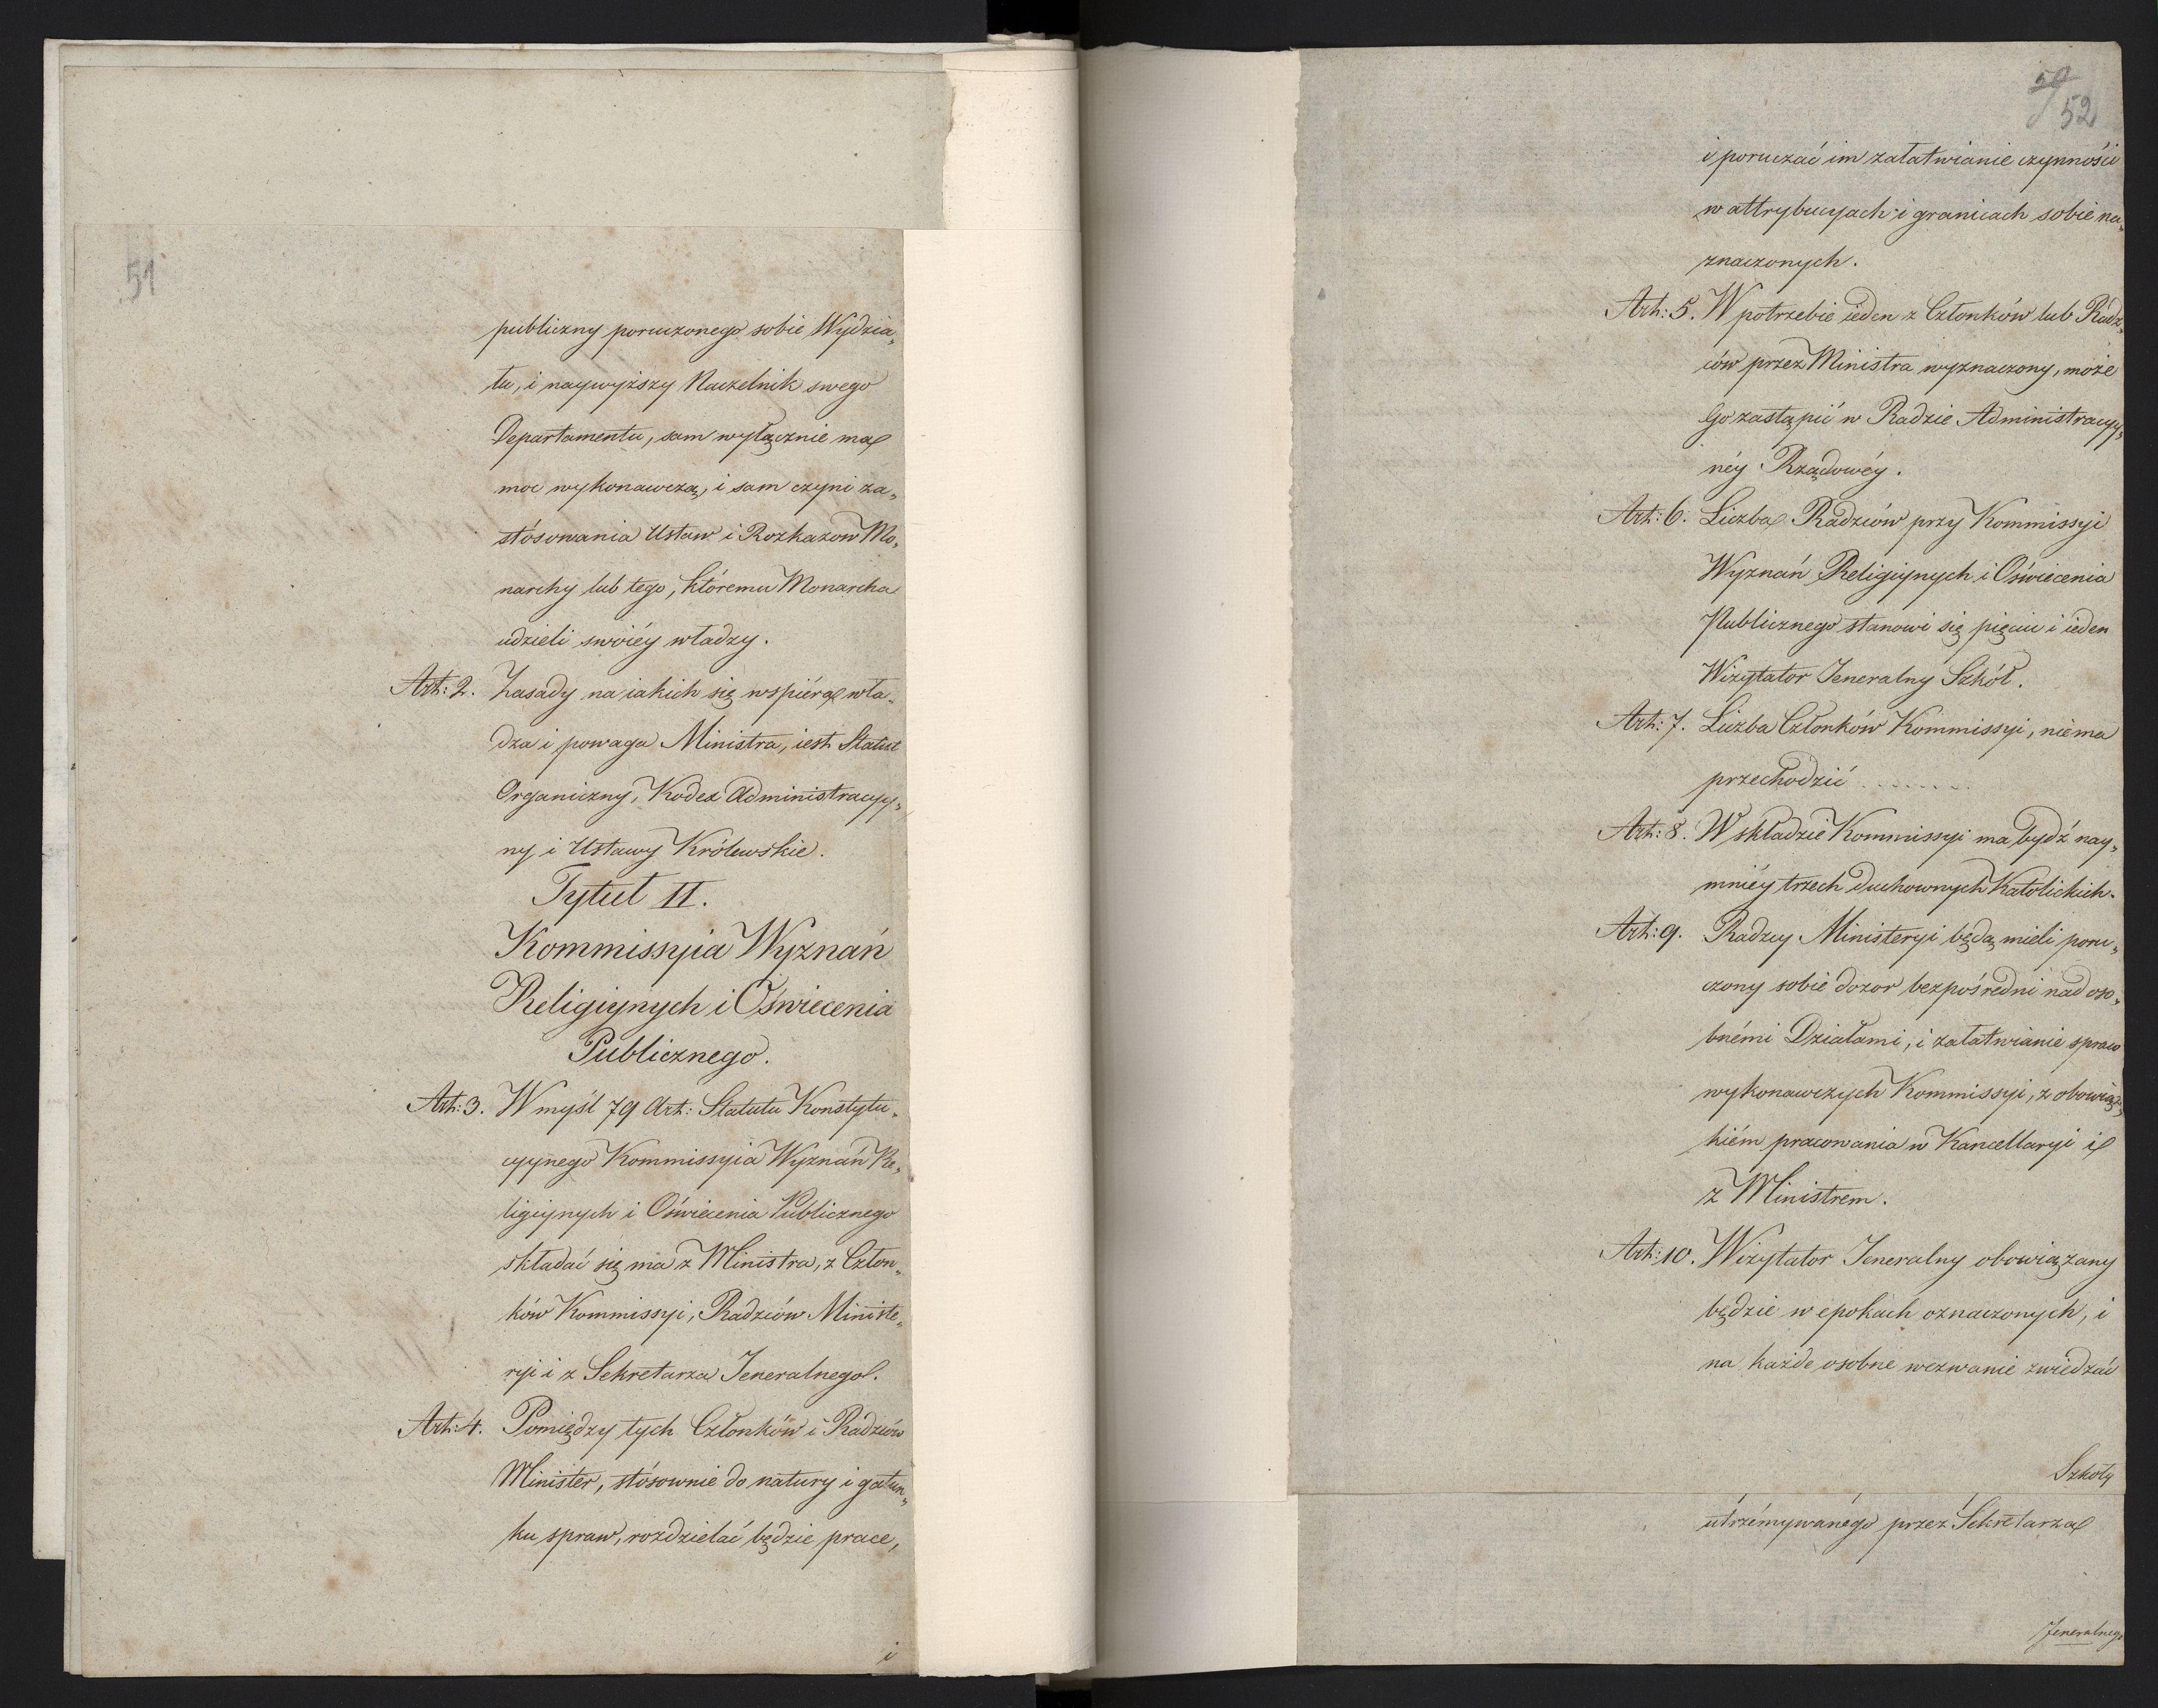 51
publiczny poruczonego sobie Wydzia„
łu, i naywyższy Naczelnik swego
Departamentu, sam wyłącznie ma
moc wykonawczą, i sam czyni za„
stósowania Ustaw i Rozkazow Mo„
narchy lub tego, któremu Monarcha
udzieli swoiéy władzy.
Art: 2. Zasady na iakich się wspiéra wła„
dza i powaga Ministra, iest Statut
Organiczny, Kodex Administracyy„
ny i Ustawy Królewskie.
Tytuł II.
Kommissyia Wyznań
Religiynych i Oświecenia
Publicznego.
Art: 3. W myśl 79 Art: Statutu Konstytu„
cyynego Kommissyia Wyznań Re„
ligiynych i Oświecenia Publicznego
składać się ma z Ministra, z Człon„
ków Kommissyi, Radzców Ministe„
ryi i z Sekretarza Jeneralnego.
Art: 4. Pomiędzy tych Członków i Radzców
Minister, stósownie do natury i gatun„
ku spraw, rozdzielać będzie prace,
i
52
i poruczać im załatwianie czynności
w attrybucyach i granicach sobie na„
znaczonych.
Art: 5. W potrzebie ieden z Członków lub Radz„
ców przez Ministra wyznaczony, może
Go zastąpić w Radzie Administracyy„
néy Rządowéy.
Art: 6. Liczba Radzców przy Kommissyi
Wyznań Religiynych i Oświecenia
Publicznego stanowi się pięciu i ieden
Wizytator Jeneralny Szkół.
Art: 7. Liczba Członków Kommissyi, niema
przechodzić . . . . . . .
Art: 8. W składzie Kommissyi ma bydź nay„
mniéy trzech duchownych Katolickich.
Art: 9. Radzcy Ministeryi będą mieli poru„
czony sobie dozor bezpośredni nad oso„
bnémi Działami, i załatwianie spraw
wykonawczych Kommissyi, z obowiąz„
kiém pracowania w Kancellaryi i
z Ministrem.
Art: 10. Wizytator Jeneralny obowiązany
będzie w epokach oznaczonych, i
na każde osobne wezwanie zwiedzać
Szkoły
utrzémywanégo przez Sekretarza
Jeneralnego